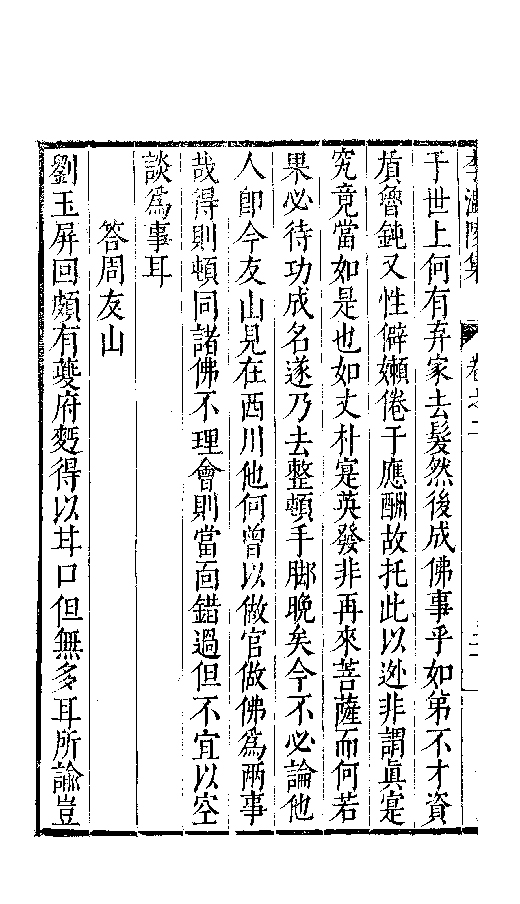 李溫陵集 卷之二
于世上何有弃家去髮然後成佛事乎如弟不才資
質魯鈍又性僻嬾倦于應酬故托此以迯非謂眞寔
究竟當如是也如丈朴寔英發非再來菩薩而何若
果必待功成名遂乃去整頓手脚晚矣今不必論他
人即今友山見在西川他何曾以做官做佛爲兩事
哉得則頓同諸佛不理會則當面錯過但不宜以空
談爲事耳
答周友山
劉玉屏回頗有夔府麫得以甘口但無多耳所諭豈